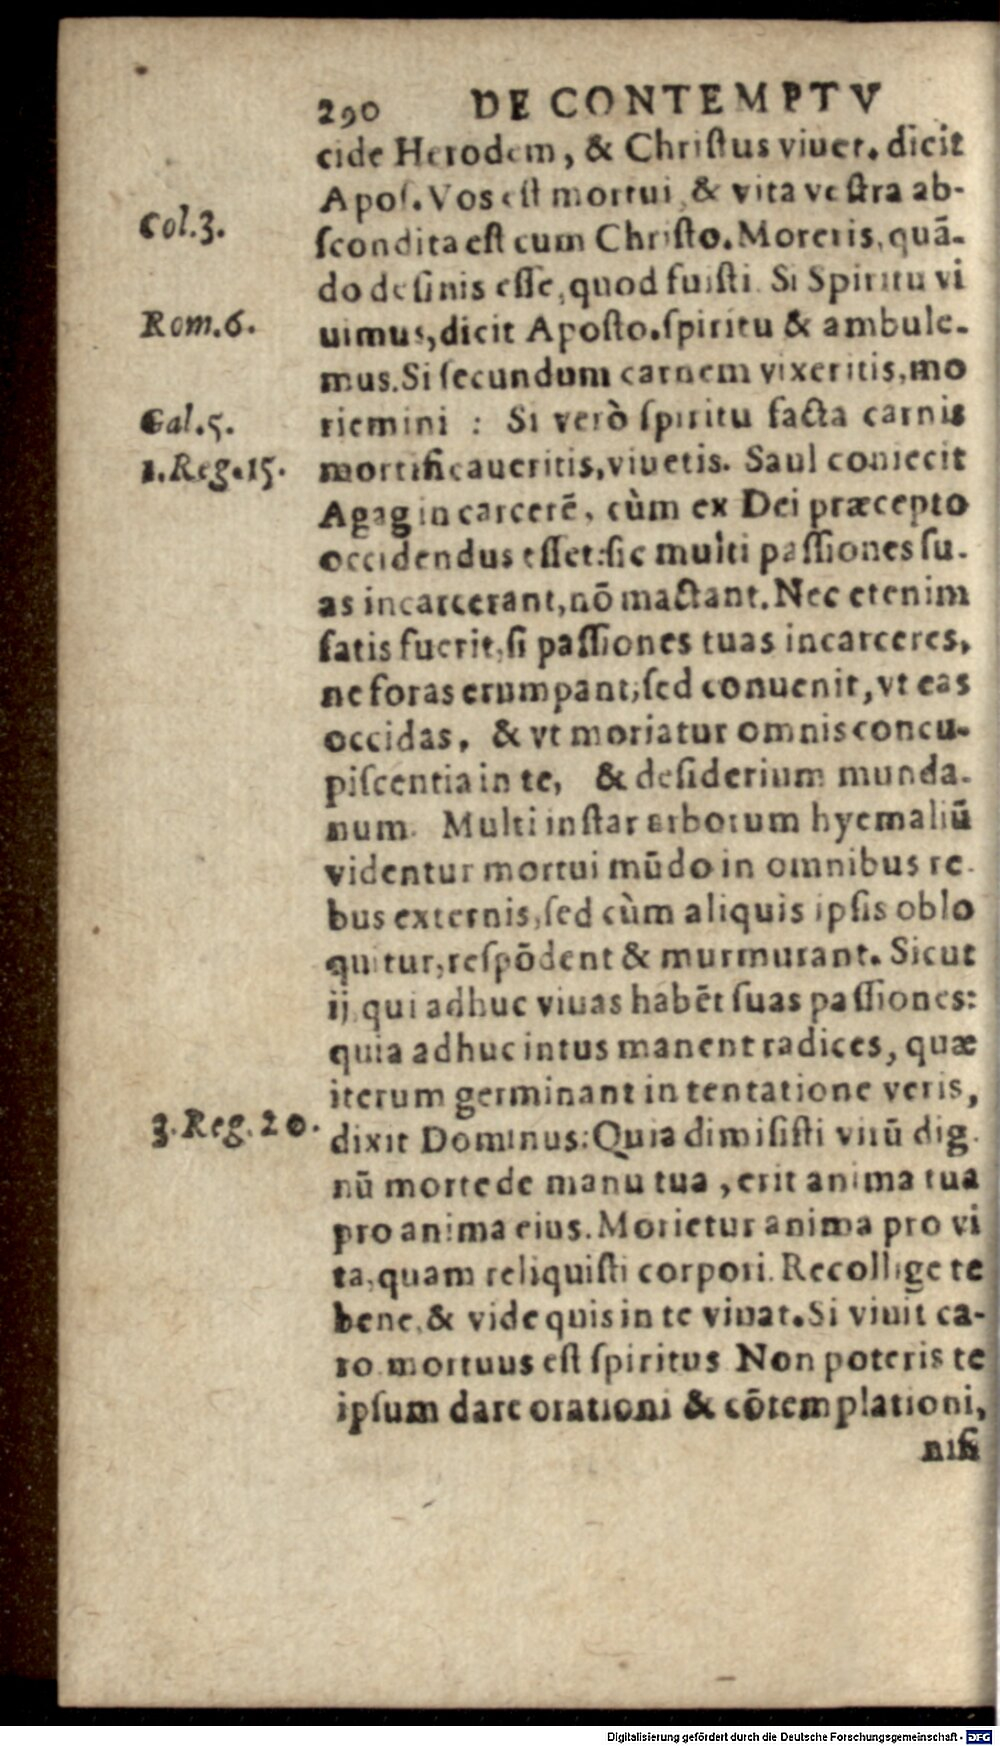 290 DE CONTEMPTV
cide Herodem, & Christus viuet. dicit
Apos. Vos est mortui & vita vestra ab-
Col.3.
scondita est cum Christo. Moreris, quā-
do desinis esse, quod fuisti. Si Spiritu vi
Rom.6.
uimus, dicit Aposto. spiritu & ambule-
mus. Si secundum carnem vixeritis, mo
Gal.5.
riemini : Si verò spiritu facta carnis
1.Reg.15.
mortificaueritis, viuetis. Saul coniecit
Agag in carcerē, cùm ex Dei præcepto
occidendus esset: sic multi passiones su-
as incarcerant, nō mactant. Nec etenim
satis fuerit, si passiones tuas incarceres,
ne foras erumpant, sed conuenit, vt eas
occidas, & vt moriatur omnis concu-
piscentia in te, & desiderium munda-
num. Multi instar arborum hyemaliū
videntur mortui mūdo in omnibus re-
bus externis, sed cùm aliquis ipsis oblo
quitur, respōdent & murmurant. Sicut
ij qui adhuc viuas habēt suas passiones:
quia adhuc intus manent radices, quæ
iterum germinant in tentatione veris,
3.Reg.20.
dixit Dominus: Quia dimisisti virū dig-
nū morte de manu tua, erit anima tua
pro anima eius. Morietur anima pro vi
ta, quam reliquisti corpori. Recollige te
bene, & vide quis in te viuat. Si viuit ca-
ro mortuus est spiritus Non poteris te
ipsum dare orationi & cōtemplationi,
nisi
Digitalisierung gefördert durch die Deutsche Forschungsgemeinschaft - DFG